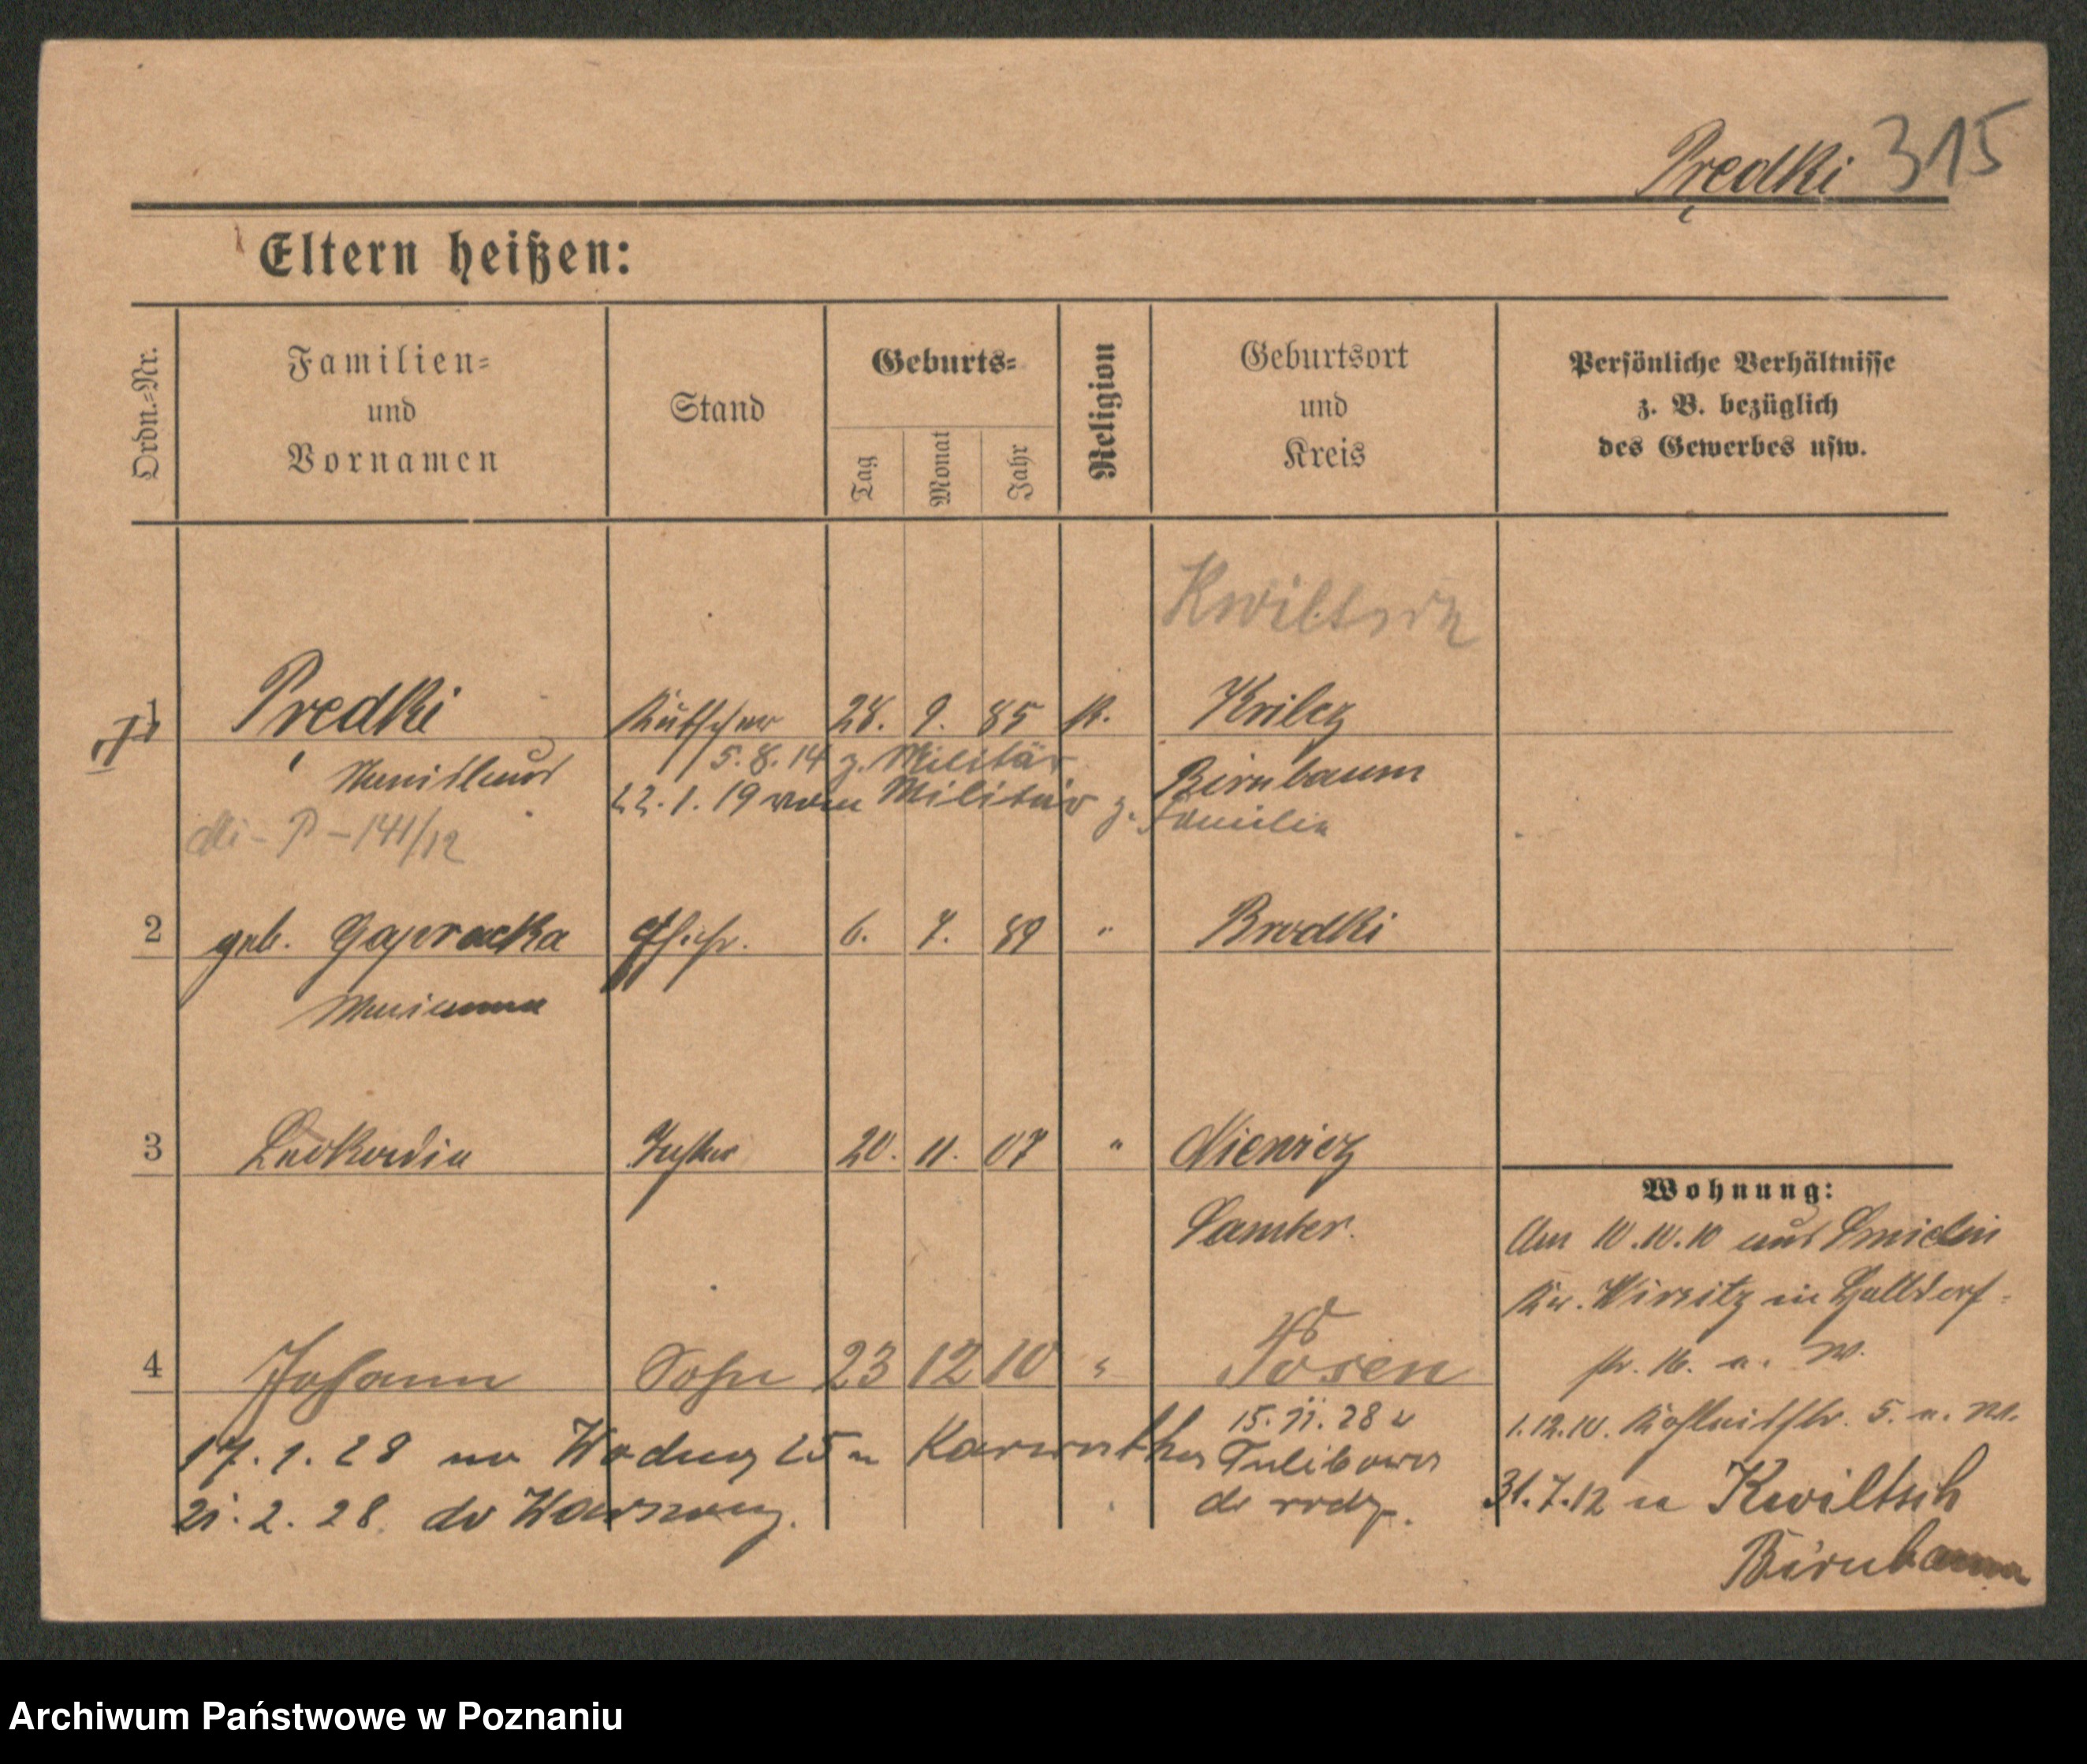 Prędki 315
Eltern heißen:
Ordn.-Nr.
Familien-
und
Vornamen
Stand
Geburts-
Tag
Monat
Jahr
Religion
Geburtsort
und
Kreis
Persönliche Verhältnisse
z. B. bezüglich
des Gewerbes usw.
Kwiltsch
1 Prędki Kutscher 28. 9. 85 k. Krilcz
5.8.14 z. Militär Birnbaum
22.1.19 vom Militär z. Familie
P-141/12
2 geb. Gapracka 6. 7. 89 " Brodki
Marianna
3 Leokardia Tochter 20. 11. 07 " Niewierz
Samter.
Wohnung:
Am 10.10.10 aus
Kr. Wirsitz in
str. 16. a. W.
4 Johann Sohn 23 12 10 " Posen
1.12.10. 5. a. W.
15. 11. 28 u
17. 1. 28 na Wodną 25 u
Tulibowo
21. 2. 28. do Warszawy.
do rodz.
31.7.12 n Kwiltsch
Birnbaum
Archiwum Państwowe w Poznaniu